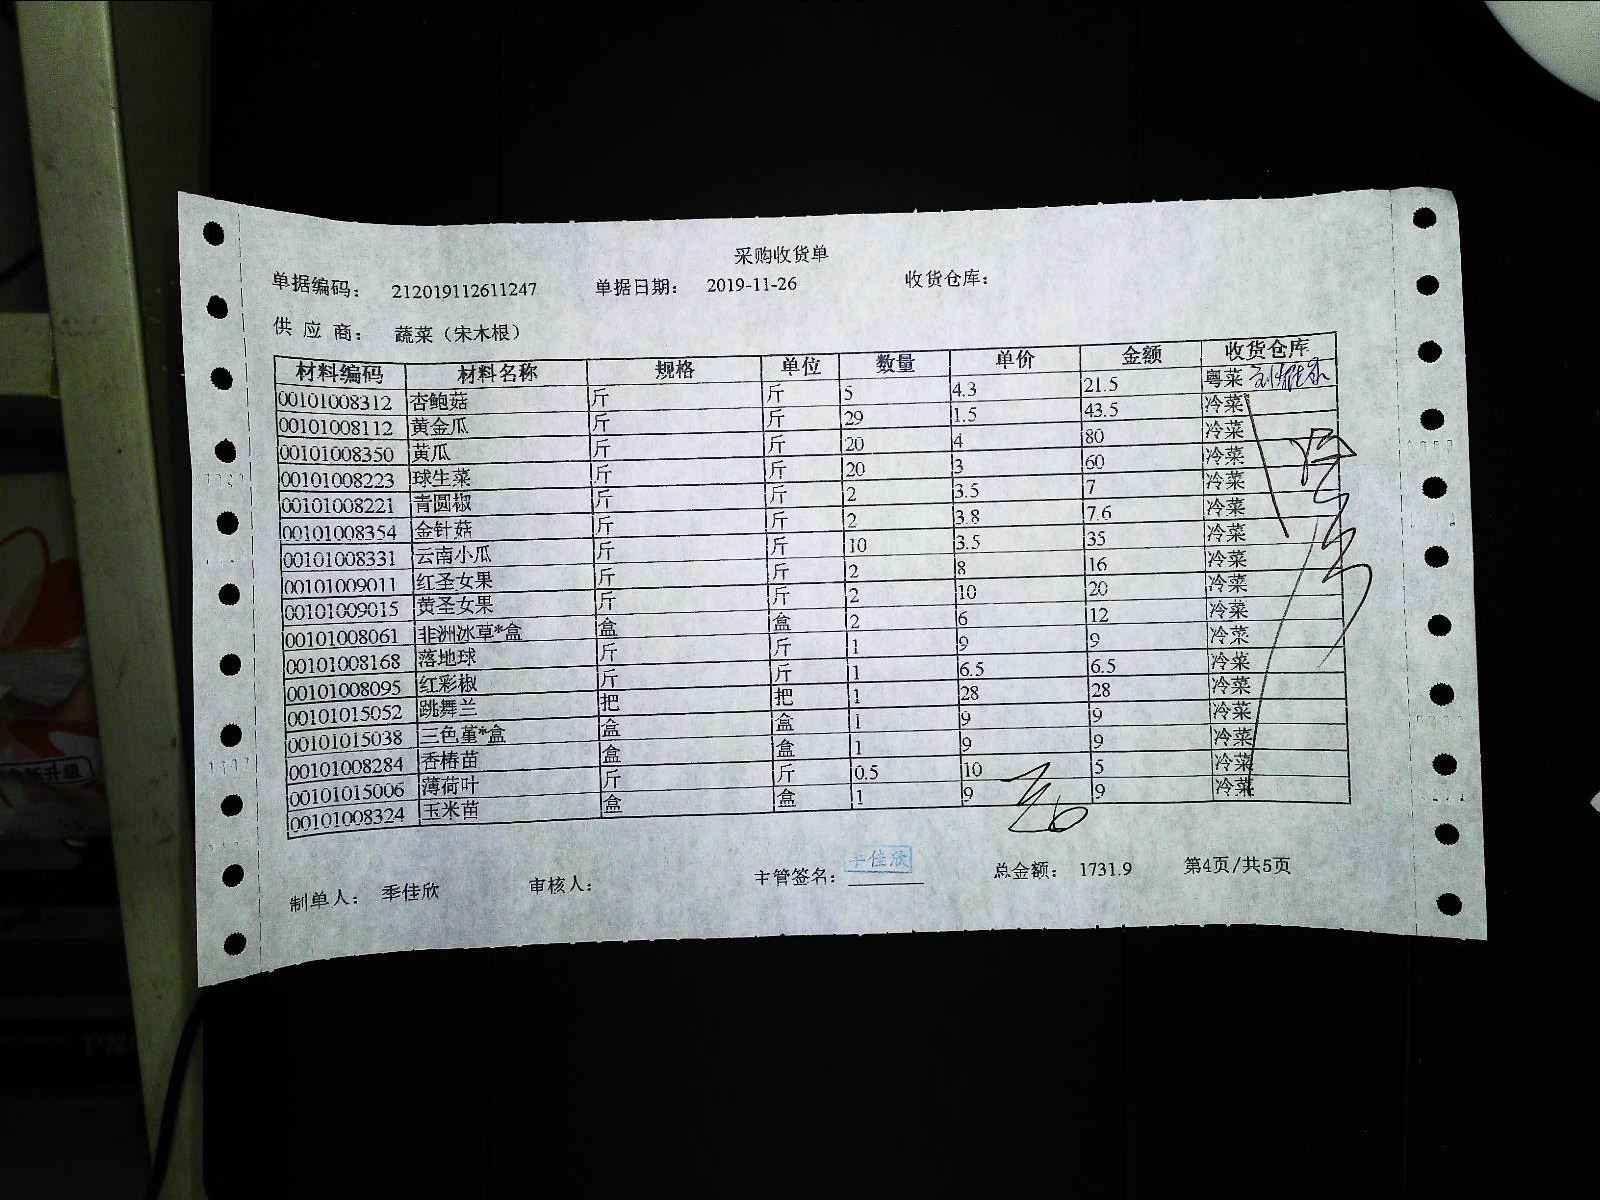 采购收货单
单据编码： 212019112611247 单据日期： 2019-11-26 收货仓库：
供 应 商： 蔬菜（宋木根）
材料编码 材料名称 规格 单位 数量 单价 金额 收货仓库
00101008312 杏鲍菇 斤 斤 5 4.3 21.5 粤菜
00101008112 黄金瓜 斤 斤 29 1.5 43.5 冷菜
00101008350 黄瓜 斤 斤 20 4 80 冷菜
00101008223 球生菜 斤 斤 20 3 60 冷菜
00101008221 青圆椒 斤 斤 2 3.5 7 冷菜
00101008354 金针菇 斤 斤 2 3.8 7.6 冷菜
00101008331 云南小瓜 斤 斤 10 3.5 35 冷菜
00101009011 红圣女果 斤 斤 2 8 16 冷菜
00101009015 黄圣女果 斤 斤 2 10 20 冷菜
00101008061 非洲冰草*盒 盒 盒 2 6 12 冷菜
00101008168 落地球 斤 斤 1 9 9 冷菜
00101008095 红彩椒 斤 斤 1 6.5 6.5 冷菜
00101015052 跳舞兰 把 把 1 28 28 冷菜
00101015038 三色堇*盒 盒 盒 1 9 9 冷菜
00101008284 香椿苗 盒 盒 1 9 9 冷菜
00101015006 薄荷叶 斤 斤 0.5 10 5 冷菜
00101008324 玉米苗 盒 盒 1 9 9 冷菜
制单人： 季佳欣 审核人： 主管签名： 季佳欣 总金额： 1731.9 第4页/共5页
新升级